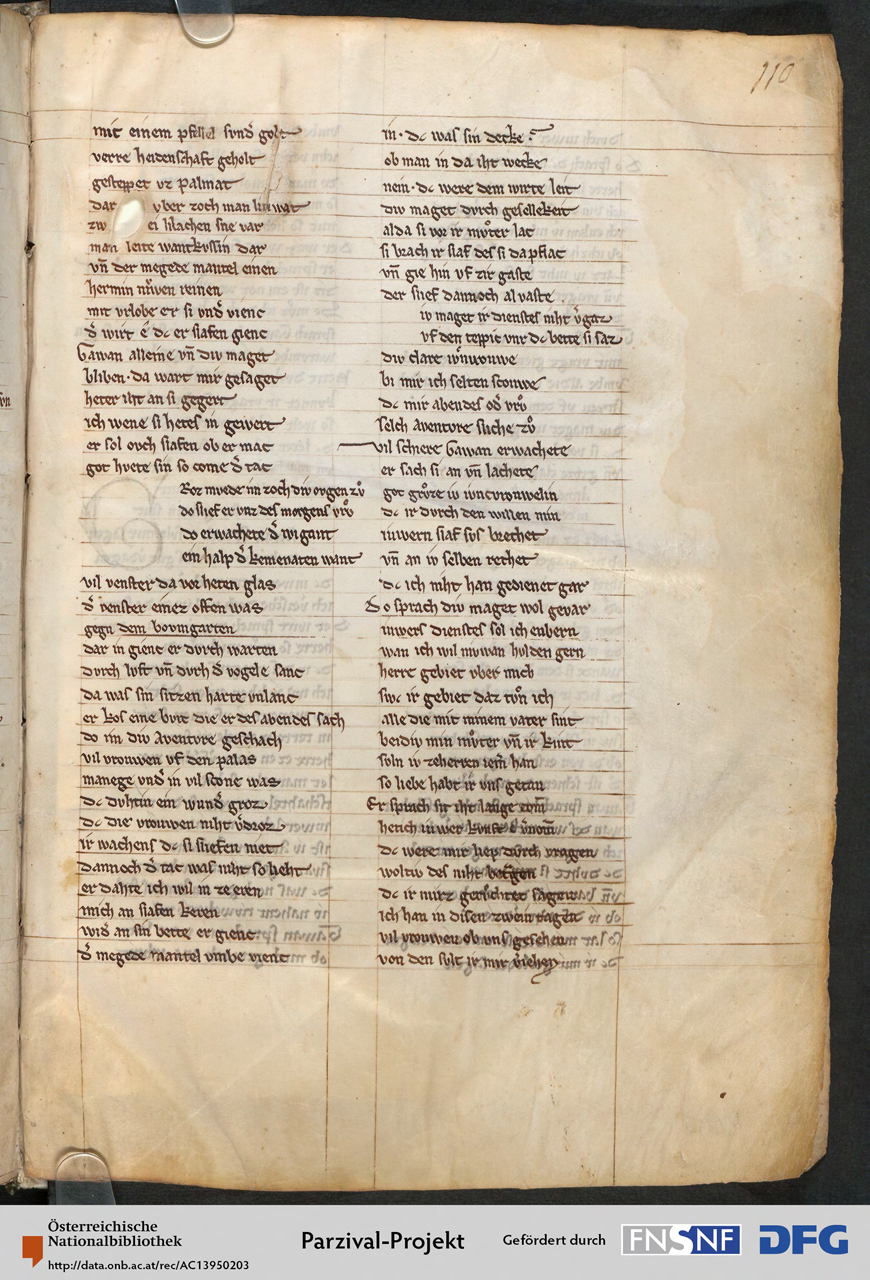 110
mit einem pfellel sund̄ golt
verre heidenschaft geholt
gesteppet vz palmat
dar vber zoch man lin wat
zwei lilachen sne var
man leite wantkvssin dar
vn̄ der megede mantel einen
hermin nv̓wen reinen
mit vrlobe er si vnd̄ vienc
d̄ wirt ê dc er slafen gienc
Gawan alleine vn̄ div maget
bliben · da wart mir gesaget
heter iht an si gegert
ich wene si hetes in gewert
er sol ovch slafen ob er mac
got hvete sin so come d̄ tac
Roz mvede im zoch div ovgen zv̊
do slief er vnz des morgens vrv̊
do erwachete d̄ wigant
ein halp d̄ kemenaten want
vil venster da vor heten glas
d̄ venster einez offen was
gegn dem bovmgarten
dar in gienc er dvrch warten
dvrch lvft vn̄ dvrh d̄ vogele sanc
da was sin sitzen harte vnlanc
er kos eine bvrc die er des abendes sach
do im div Aventvre geschach
vil vrouwen vf den palas
manege vnd̄ in vil scone was
dc dvhtin ein wund̄ groz
dc die vrouwen niht v̄droz
ir wachens dc si sliefen niet
dannoch d̄ tac was niht so lieht
er dahte ich wil in ze eren
mich an slafen keren
wid̄ an sin bette er gienc
d̄ megede mantel vmbe vienc
in · dc was sin decke
ob man in da iht wecke
nein · dc were dem wirte leit
div maget dvrch gesellekeit
alda si vor ir mv̊ter lac
si brach ir slaf des si da pflac
vn̄ gie hin vf zir gaste
der slief dannoch al vaste
iv maget ir dienstes niht v̄gaz
vf den teppic vnr dc bette si saz
div clare ivncvrouwe
bi mir ich selten scouwe
dc mir abendes od̄ vrv̊
selch Aventvre sliche zv̊
vil schiere Gawan erwachete
er sach si an vn̄ lachete
got grv̊ze iv ivncvrouwelin
dc ir dvrch den willen min
iuwern slaf svs brechet
vn̄ an iv selben rechet
dc ich niht han gedienet gar
Do sprach div maget wol gevar
iuwers dienstes sol ich enbern
wan ich wil niuwan hvlden gern
herre gebiet vber mich
swc ir gebiet daz tv̊n ich
alle die mit minem vater sint
beidiv min mv̊ter vn̄ ir kint
soln iv zeherren iem̄ han
so liebe habt ir vns getan
Er sprach sit iht lange com̄
hetich iuwer kvnft ê v̄nom̄
dc were mir liep dvrch vragen
woltiv des niht betragen
dc ir mirz gerv̊chtet sagen
ich han in disen zwein tagen
vil vrouwen ob vns gesehen
von den svlt ir mir v̄iehen
Österreichische
Nationalbibliothek
http://data.onb.ac.at/rec/AC13950203
Parzival-Projekt
Gefördert durch
FNSNF
DFG